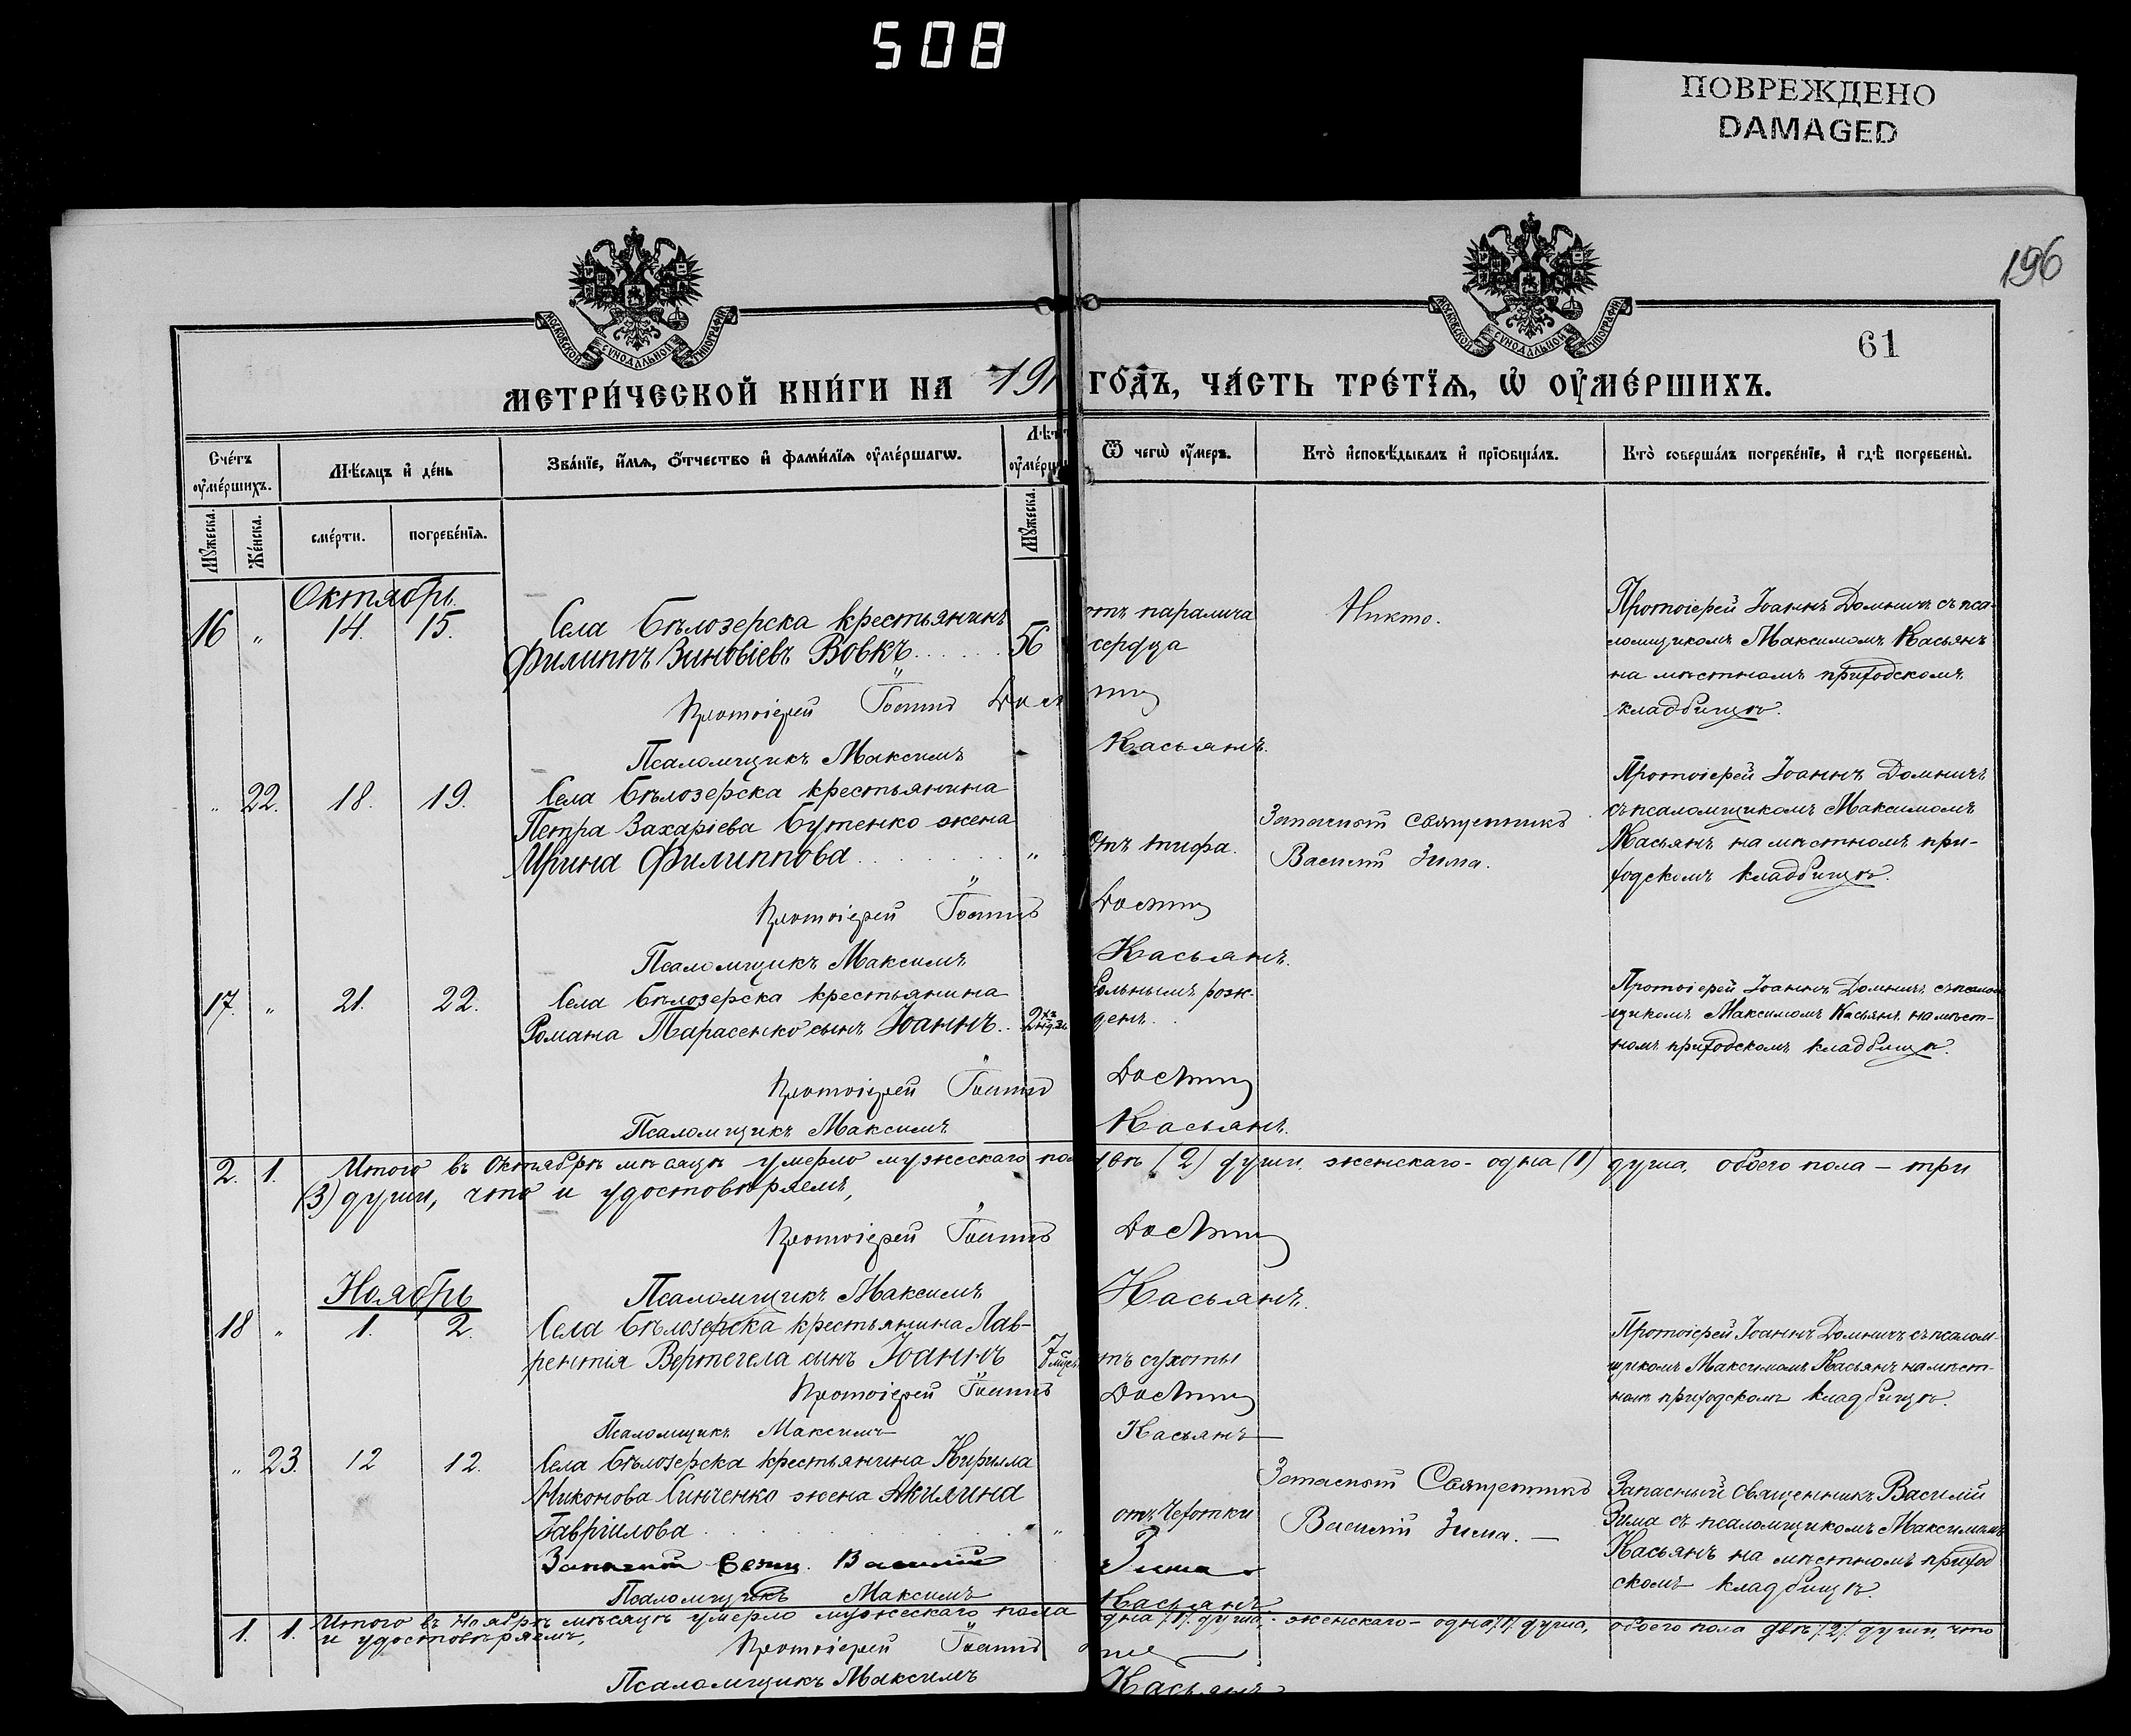 508
ПОВРЕЖДЕНО
DAMAGED
196
МОСКОВСКОЙ СѴНОДАЛЬНОЙ ТИПОГРАФІИ
МОСКОВСКОЙ СѴНОДАЛЬНОЙ ТИПОГРАФІИ
61
МЕТРИ́ЧЕСКОЙ КНИ́ГИ НА 191 ГО́ДЪ, ЧА́СТЬ ТРЕ́ТЇѦ, Ѡ҆ ОУ҆МЕ́РШИХЪ.
Сче́тъ оу҆ме́ршихъ.
Мѣ́сяцъ и҆ де́нь
Зва́нїе, и҆́мѧ, ѻ҆́тчество и҆ фами́лїѧ оу҆ме́ршагѡ.
Лѣт
оу҆ме́рш
Ѿ чегѡ̀ оу҆́меръ.
Кто̀ и҆сповѣ́дывалъ и҆ прїѻбща́лъ.
Кто̀ соверша́лъ погребе́нїе, и҆ гдѣ̀ погребены̀.
Мꙋ́жеска.
Же́нска.
сме́рти.
погребе́нїѧ.
Мꙋ́жеска.
Октябрь
16 " 14. 15. Села Бѣлозерска крестьянинъ
Филиппъ Зиновіевъ Вовкъ 56
отъ паралича
сердца
Никто.
Протоіерей Іоаннъ Домничъ съ пса-
ломщикомъ Максимомъ Касьянъ
на мѣстномъ приходскомъ
кладбищѣ.
Протоіерей Іоаннъ
Псаломщикъ Максимъ Касьянъ.
" 22. 18. 19. Села Бѣлозерска крестьянина
Петра Захаріева Бутенко жена
Ирина Филиппова "
отъ тифа.
Запасный Священникъ
Василій Зима.
Протоіерей Іоаннъ Домничъ
съ псаломщикомъ Максимомъ
Касьянъ на мѣстномъ при-
ходскомъ кладбищѣ.
Протоіерей Іоаннъ Домничъ
Псаломщикъ Максимъ Касьянъ.
17. " 21. 22. Села Бѣлозерска крестьянина
Романа Тарасенко сынъ Іоаннъ 2хъ
больнымъ рож-
денъ
Протоіерей Іоаннъ Домничъ съ псалом
щикомъ Максимомъ Касьянъ на мѣст-
номъ приходскомъ кладбищѣ.
Протоіерей Іоаннъ Домничъ
Псаломщикъ Максимъ Касьянъ.
2. 1. Итого въ Октябрѣ мѣсяцѣ умерло мужескаго пол двѣ (2) души, женскаго - одна (1) душа, обоего пола - три
(3) души, что и удостовѣряемъ,
Протоіерей Іоаннъ Домничъ
Псаломщикъ Максимъ Касьянъ.
Ноябрь
18 " 1. 2. Села Бѣлозерска крестьянина Лав-
рентія Вертегела сынъ Іоаннъ 7
тъ сухоты
Протоіерей Іоаннъ Домничъ съ псалом-
щикомъ Максимомъ Касьянъ на мѣст-
номъ приходскомъ кладбищѣ.
Протоіерей Іоаннъ Домничъ
Псаломщикъ Максимъ Касьянъ
" 23. 12 12. Села Бѣлозерска крестьянина Кирилла
Никонова Синченко жена Акилина
Гавріилова "
отъ Чехотки
Запасный Священникъ
Василій Зима. —
Запасный священникъ Василій
Зима съ псаломщикомъ Максимомъ
Касьянъ на мѣстномъ приход
скомъ кладбищѣ.
Запасный Свящ. Василій Зима
Псаломщикъ Максимъ Касьянъ
1. 1. Итого въ Ноябрѣ мѣсяцѣ умерло мужескаго пола одна /1/ душа, женскаго - одна /1/ душа, обоего пола двѣ /2/ души, что
и удостовѣряемъ,
Протоіерей Іоаннъ
Псаломщикъ Максимъ Касьянъ